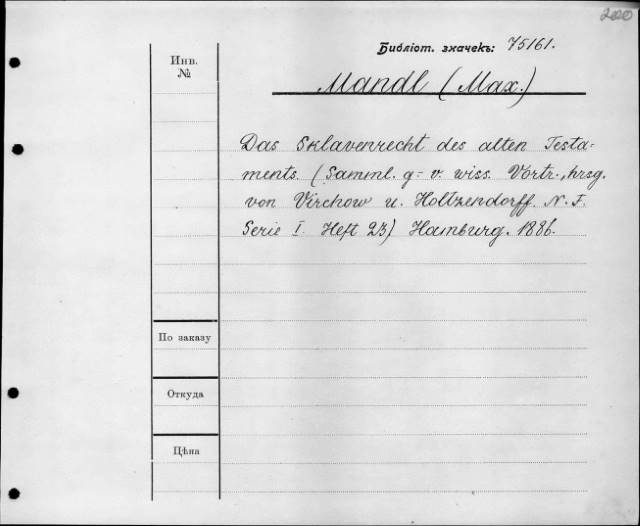 200
Библіот. значекъ: 75161.
Инв.
№
Mandl (Max.)
Das Sklavenrecht des alten Testa-
ments. (Samml. g= v. wiss. Vortr., hrsg.
von Virchow u. Holtzendorff. N. F.
Serie I. Heft 23) Hamburg. 1886.
По заказу
Откуда
Цѣна